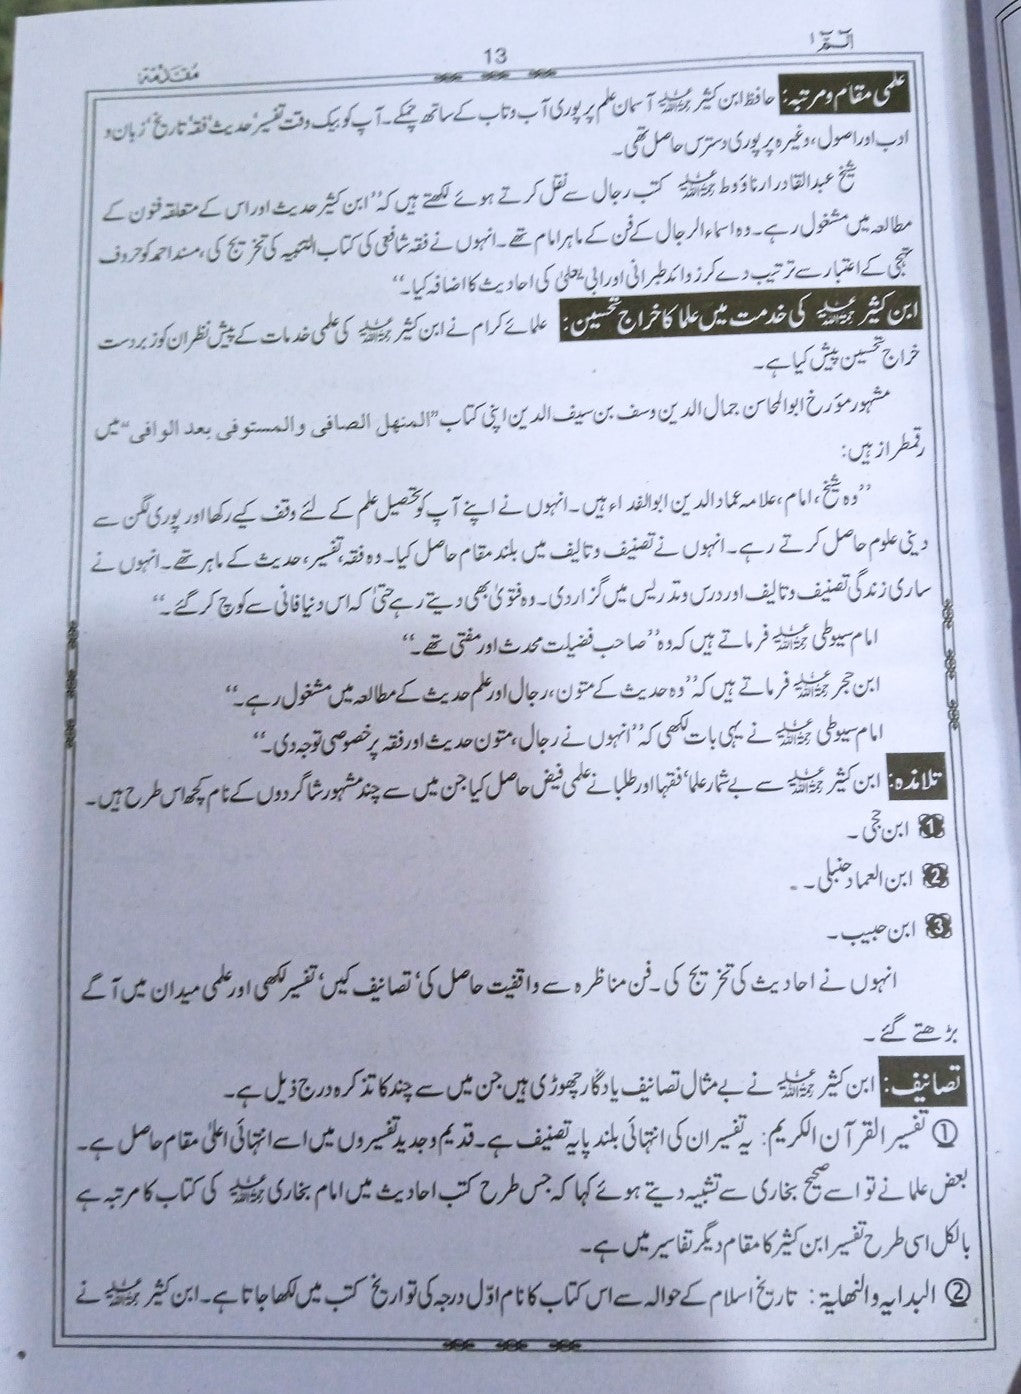 الٓمّٓ ۱
13
مُقَدِّمَۃ
علمی مقام و مرتبہ: حافظ ابن کثیر رحمۃ اللہ علیہ آسمان علم پر پوری آب و تاب کے ساتھ چمکے۔ آپ کو بیک وقت تفسیر، حدیث، فقہ، تاریخ، زبان و
ادب اور اصول، وغیرہ پر پوری دسترس حاصل تھی۔
شیخ عبدالقادر ارناؤوط رحمۃ اللہ علیہ کتب رجال سے نقل کرتے ہوئے لکھتے ہیں کہ ”ابن کثیر حدیث اور اس کے متعلقہ فنون کے
مطالعہ میں مشغول رہے۔ وہ اسماء الرجال کے فن کے ماہر امام تھے۔ انہوں نے فقہ شافعی کی کتاب التنبیہ کی تخریج کی، مسند احمد کو حروف
تہجی کے اعتبار سے ترتیب دے کر زوائد طبرانی اور ابی یعلیٰ کی احادیث کا اضافہ کیا۔“
ابن کثیر رحمۃ اللہ علیہ کی خدمت میں علما کا خراج تحسین: علمائے کرام نے ابن کثیر رحمۃ اللہ علیہ کی علمی خدمات کے پیش نظر ان کو زبردست
خراج تحسین پیش کیا ہے۔
مشہور مؤرخ ابوالمحاسن جمال الدین وسف بن سیف الدین اپنی کتاب ”المنهل الصافی والمستوفی بعد الوافی“ میں
رقمطراز ہیں:
”وہ شیخ، امام، علامہ عماد الدین ابوالفداء ہیں۔ انہوں نے اپنے آپ کو تحصیل علم کے لئے وقف کیے رکھا اور پوری لگن سے
دینی علوم حاصل کرتے رہے۔ انہوں نے تصنیف و تالیف میں بلند مقام حاصل کیا۔ وہ فقہ، تفسیر، حدیث کے ماہر تھے۔ انہوں نے
ساری زندگی تصنیف و تالیف اور درس و تدریس میں گزار دی۔ وہ فتویٰ بھی دیتے رہے حتیٰ کہ اس دنیا فانی سے کوچ کر گئے۔“
امام سیوطی رحمۃ اللہ علیہ فرماتے ہیں کہ وہ ”صاحب فضیلت محدث اور مفتی تھے۔“
ابن حجر رحمۃ اللہ علیہ فرماتے ہیں کہ ”وہ حدیث کے متون، رجال اور علم حدیث کے مطالعہ میں مشغول رہے۔“
امام سیوطی رحمۃ اللہ علیہ نے یہی بات لکھی کہ ”انہوں نے رجال، متون حدیث اور فقہ پر خصوصی توجہ دی۔“
تلامذہ: ابن کثیر رحمۃ اللہ علیہ سے بے شمار علما، فقہا اور طلبا نے علمی فیض حاصل کیا جن میں سے چند مشہور شاگردوں کے نام کچھ اس طرح ہیں۔
1 ابن حجی۔
2 ابن العماد حنبلی۔
3 ابن حبیب۔
انہوں نے احادیث کی تخریج کی۔ فن مناظرہ سے واقفیت حاصل کی، تصانیف کیں، تفسیر لکھی اور علمی میدان میں آگے
بڑھتے گئے۔
تصانیف: ابن کثیر رحمۃ اللہ علیہ نے بے مثال تصانیف یادگار چھوڑی ہیں جن میں سے چند کا تذکرہ درج ذیل ہے۔
① تفسیر القرآن الکریم: یہ تفسیر ان کی انتہائی بلند پایہ تصنیف ہے۔ قدیم و جدید تفسیروں میں اسے انتہائی اعلیٰ مقام حاصل ہے۔
بعض علما نے تو اسے صحیح بخاری سے تشبیہ دیتے ہوئے کہا کہ جس طرح کتب احادیث میں امام بخاری رحمۃ اللہ علیہ کی کتاب کا مرتبہ ہے
بالکل اسی طرح تفسیر ابن کثیر کا مقام دیگر تفاسیر میں ہے۔
② البدایہ والنھایۃ: تاریخ اسلام کے حوالہ سے اس کتاب کا نام اوّل درجہ کی تواریخ کتب میں لکھا جاتا ہے۔ ابن کثیر رحمۃ اللہ علیہ نے